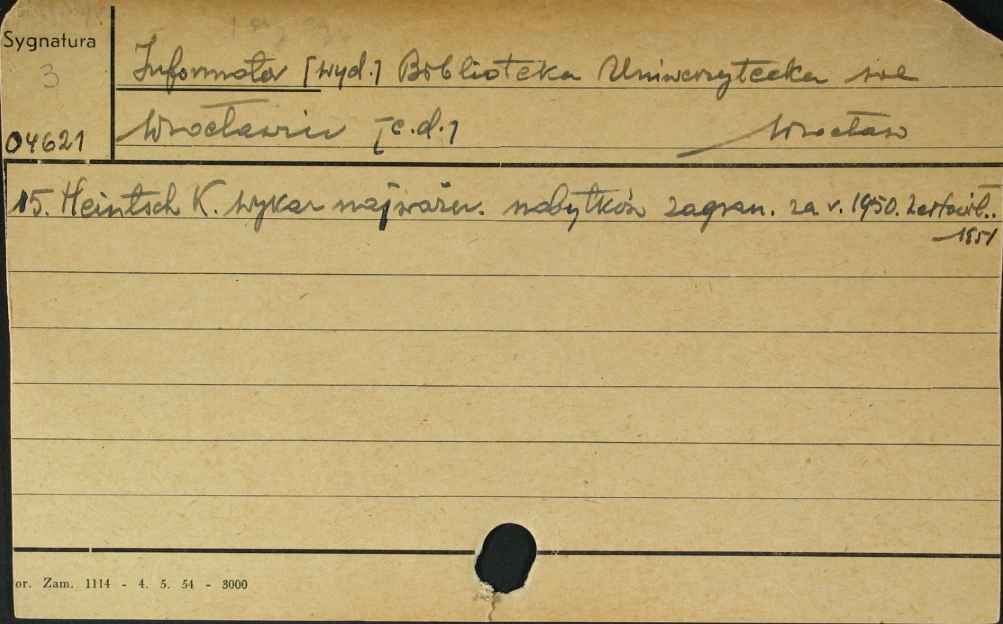 Sygnatura
3
04621
Informator [wyd.] Biblioteka Uniwersytecka we
Wrocławiu [c.d.] Wrocław
15. Heintsch K. Wykaz najważn. nabytków zagran. za r. 1950. Zestawił..
1951
or. Zam. 1114 - 4. 5. 54 - 3000